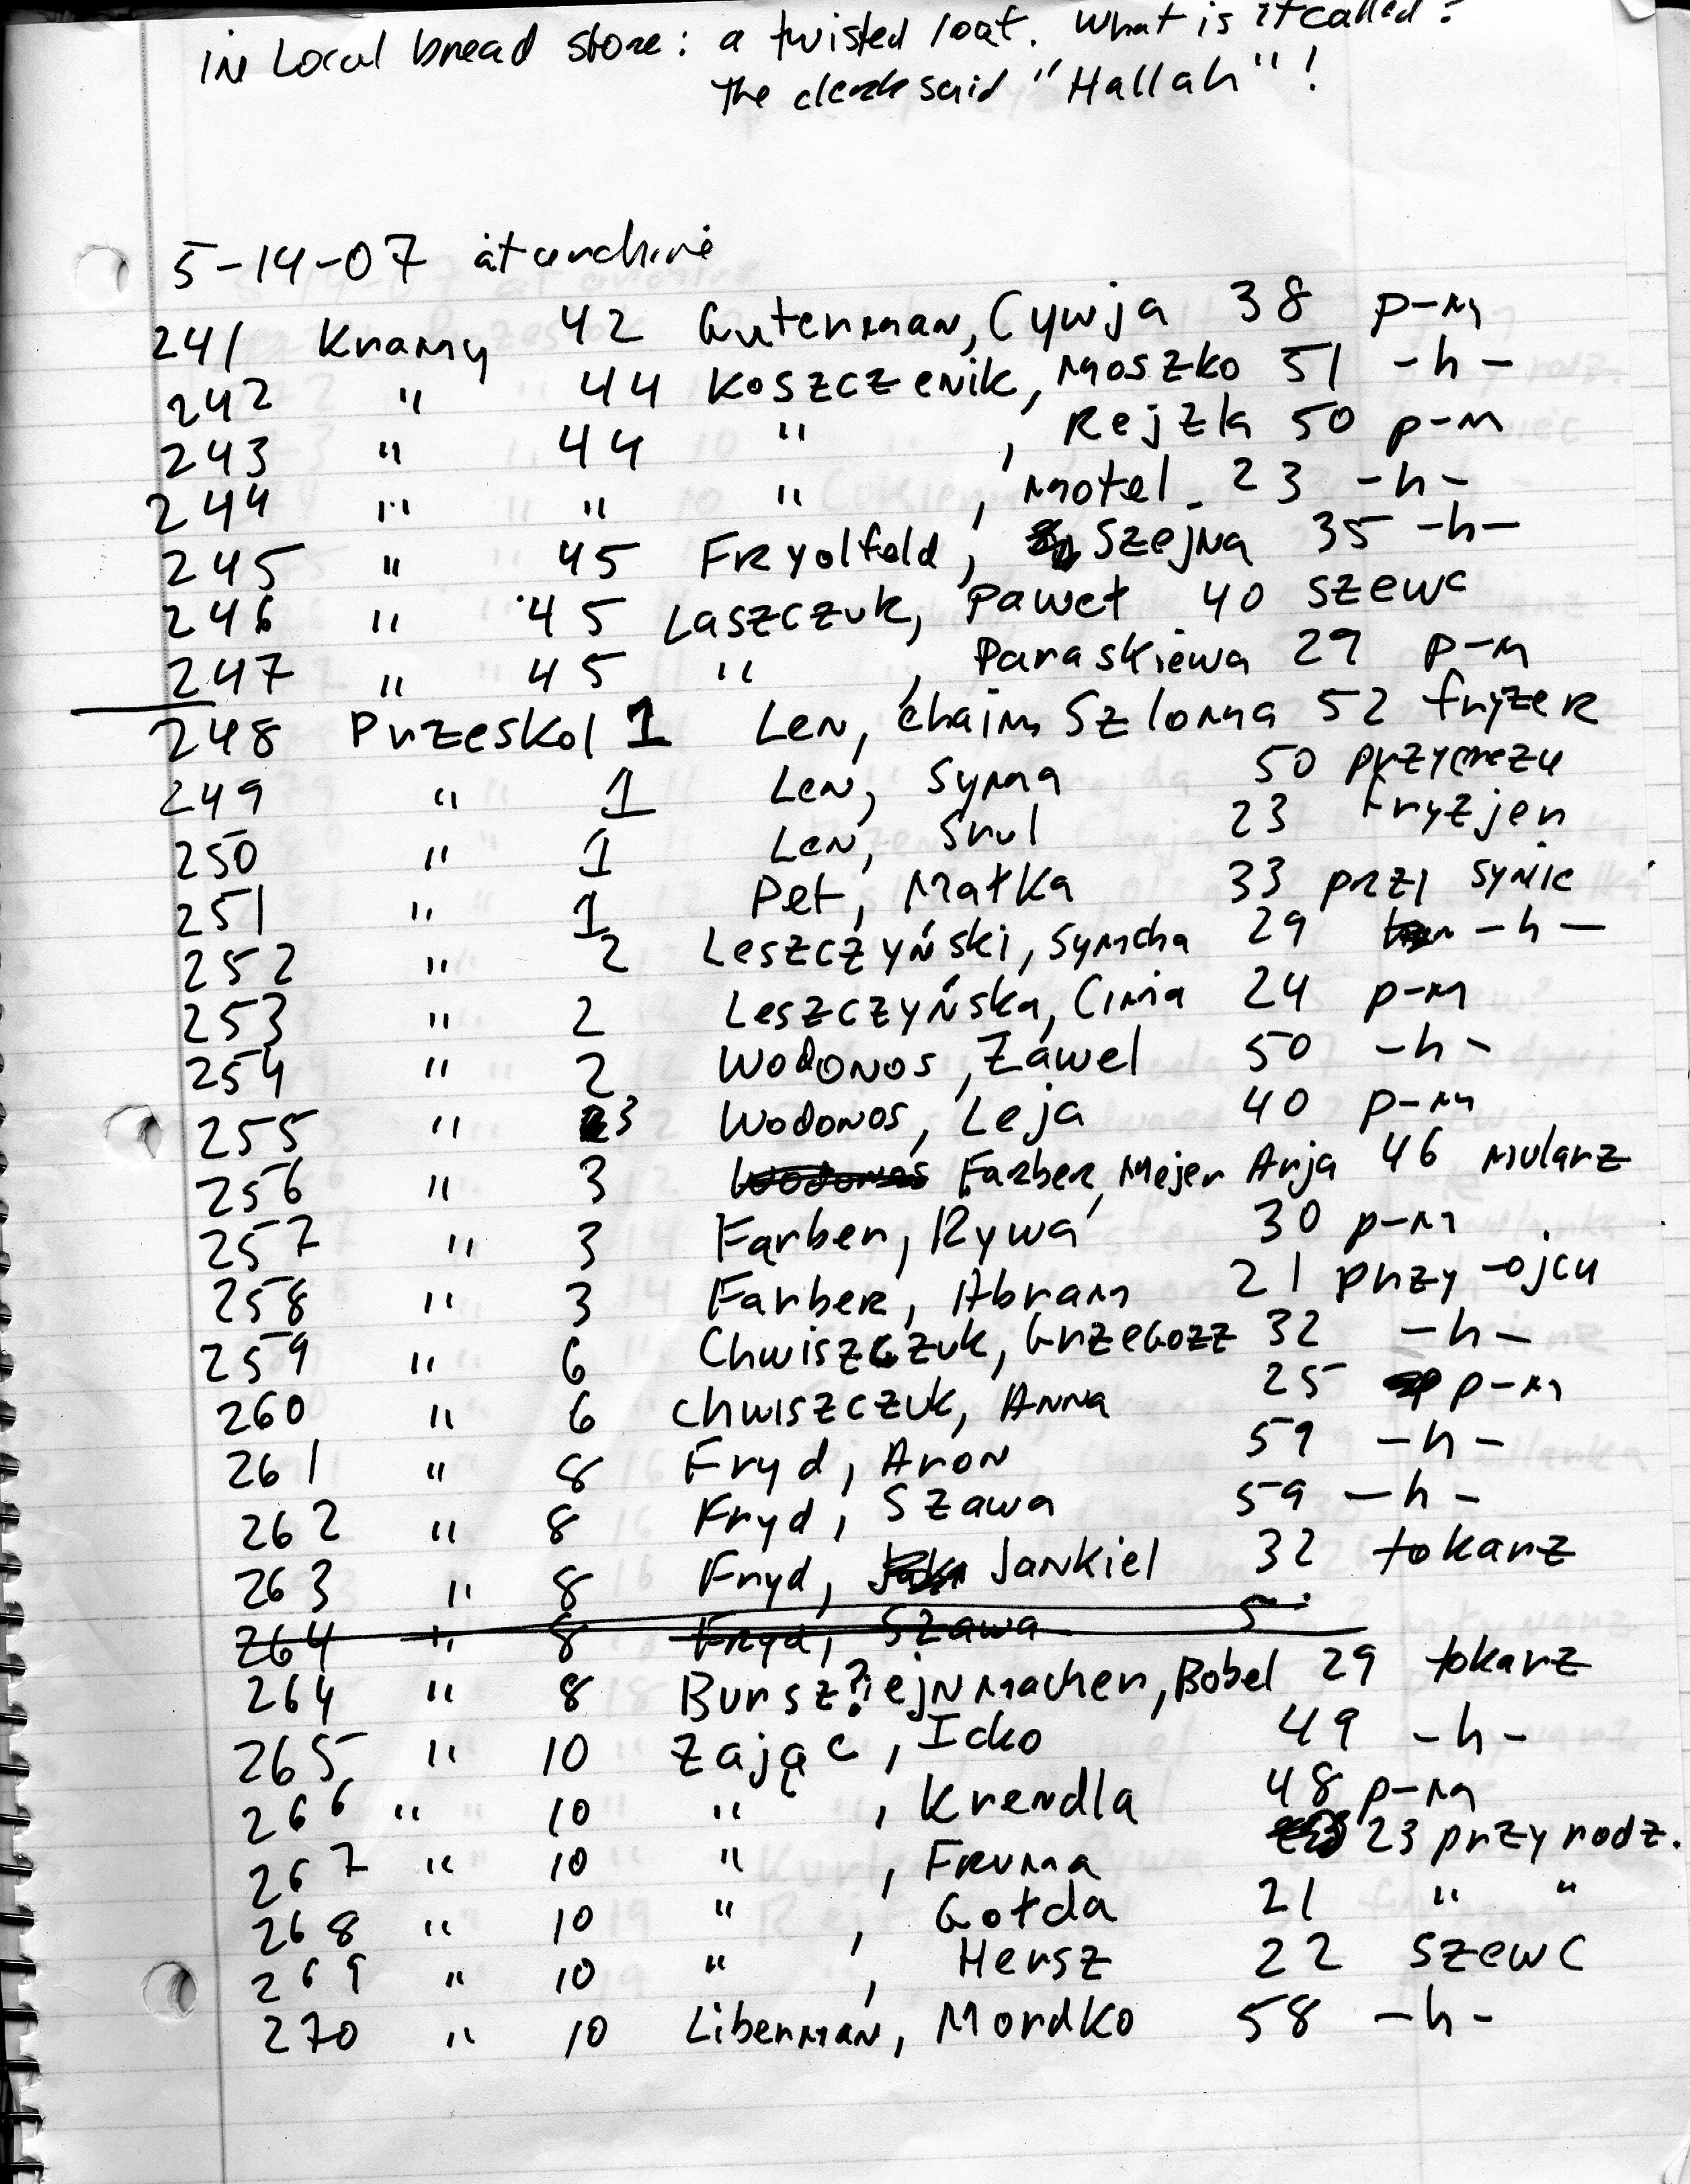 in Local bread store: a twisted loaf. What is it called?
The clerk said "Hallah"!
5-14-07 at archive
241 Kramy 42 Guterman, Cywja 38 p-m
242 " 44 Koszczenik, Moszko 51 -h-
243 " 44 " , Rejzla 50 p-m
244 " " " , Motel 23 -h-
245 " 45 Frydfeld, Szejna 35 -h-
246 " 45 Laszczuk, Paweł 40 szewc
247 " 45 " , Paraskiewa 29 p-m
248 Przeskol 1 Len, Chaim Szloma 52 fryzer
249 " 1 Len, Syma 50 przy
250 " 1 Len, Srul 23 fryzjer
251 " 1 Pet, Małka 33 przy synie
252 " 2 Leszczyński, Symcha 29 -h-
253 " 2 Leszczyńska, Cima 24 p-m
254 " 2 Wodonos, Zawel 50 -h-
255 " 3 Wodonos, Leja 40 p-m
256 " 3 Wodonos Farber, Mejer Arja 46 mularz
257 " 3 Farber, Rywa 30 p-m
258 " 3 Farber, Abram 21 przy-ojcu
259 " 6 Chwiszczuk, Grzegozz 32 -h-
260 " 6 Chwiszczuk, Anna 25 p-m
261 " 8 Fryd, Aron 59 -h-
262 " 8 Fryd, Szawa 59 -h-
263 " 8 Fryd, Jankiel 32 tokarz
264 " 8 Fryd, Szawa 5
264 " 8 Bursz?ejnmacher, Bobel 29 tokarz
265 " 10 Zając, Icko 49 -h-
266 " 10 " , Krendla 48 p-m
267 " 10 " , Fruma 23 przy rodz.
268 " 10 " , Gołda 21 " "
269 " 10 " , Hersz 22 szewc
270 " 10 Liberman, Mordko 58 -h-